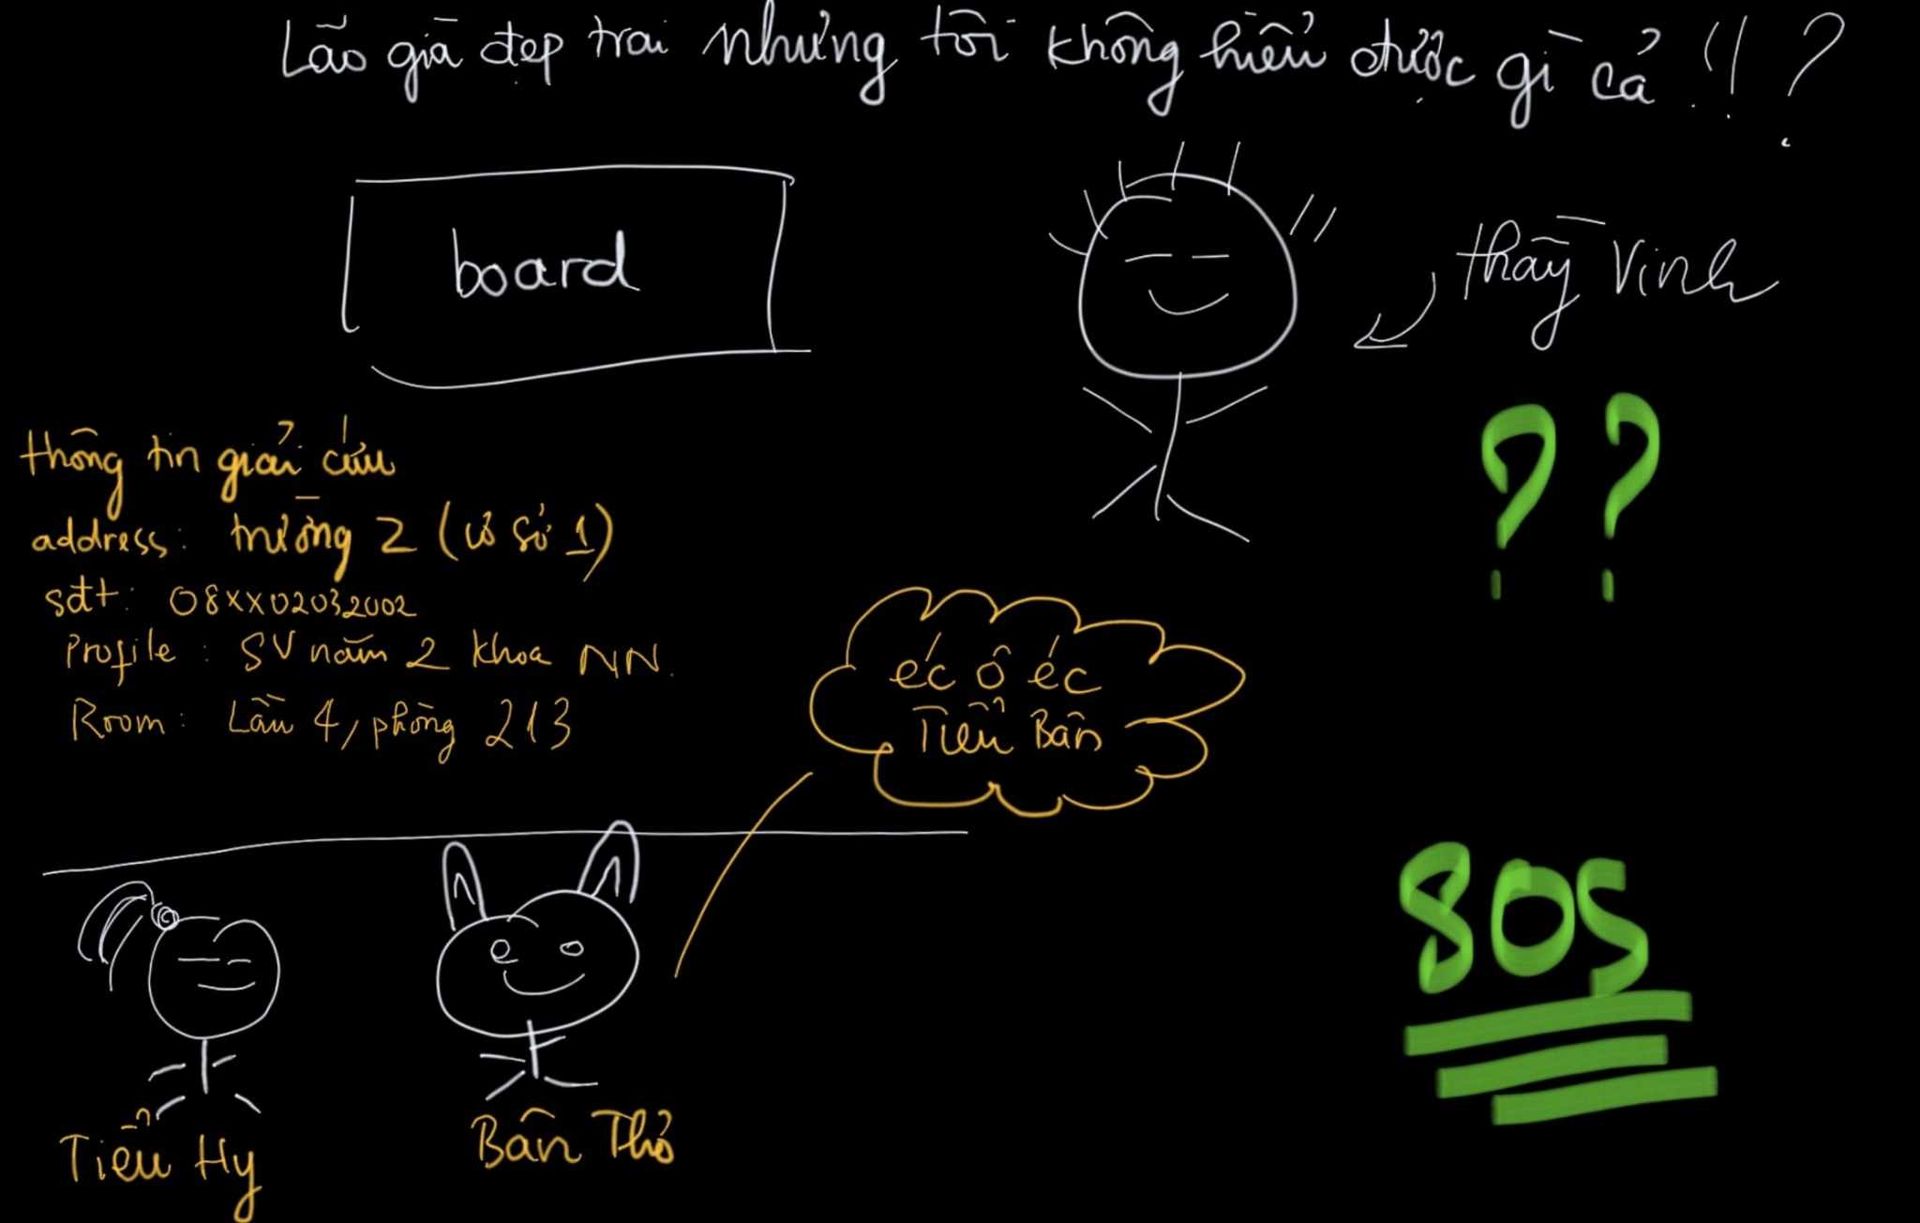 Lão già đẹp trai nhưng tôi không hiểu được gì cả !! ?
board
thầy Vinh
? ?
thông tin giải cứu
address: trường 2 (cơ sở 1)
sđt: 08xx02032002
Profile: SV năm 2 khoa NN.
Room: Lầu 4, phòng 213
éc ô éc
Tiểu Bân
SOS
Tiểu Hy
Bân Thỏ